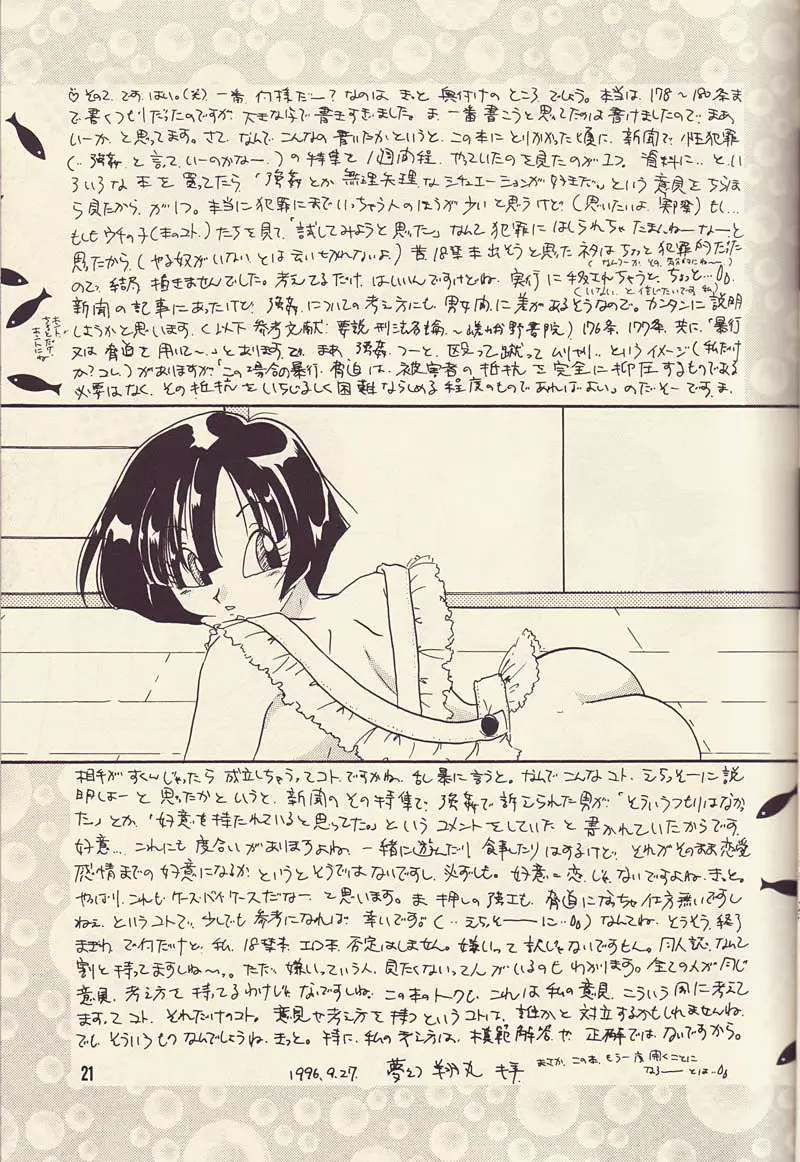 ♡その2.です.はい。(笑). 一番.何様だー?なのは.きっと.奥付けのところでしょう。本当は.178~180条ま
で書くつもりだったのですが.大きな字で書きすぎました。ま.一番書こうと思ってたのは書けましたので.まあ
いーか.と思ってます。さて.なんで.こんなの書いたかというと.この本にとりかかった頃に.新聞で.性犯罪
(‥強姦.と言って.いーのかなー.)の特集を1週間程.やっていたのを見たのが1つ.資料に‥と.い
ろいろな本を買ってたら.「強姦とか無理矢理なシチュエーションが好きだ。」という意見をちらほ
ら見たから.が1つ。本当に犯罪にまでいっちゃう人のほうが少いと思うけど(思いたいよ.実際)もし…
もしもウチの子(本のコト.)たちを見て.「試してみようと思った」なんて犯罪にはしられちゃたまんねーなーと
思ったから.(やる奴がいないとは云いきれないよ.)昔.18禁本出そうと思ったネタはちょっと犯罪的だった
ので.結局.描きませんでした。考えてるだけ.はいいんですけどね.実行に移されちゃうと.ちょっと…
(いない.と信じたいです.私)
新聞の記事にあったけど.強姦についての考え方にも.男女間に差があるそうなので。カンタンに説明
しようかと思います.(以下.参考文献:要説刑法各論~嵯峨野書院)176条.177条.共に.「暴行
又は脅迫を用いて~.」とあります.が.まあ.強姦.つーと.殴って蹴ってムリヤリ‥というイメージ(私だけ
か?コレ.)がありますが「この場合の暴行.脅迫は.被害者の抵抗を完全に抑圧するものである
必要はなく.その抵抗をいちじるしく困難ならしめる程度のものであればよい」のだそーです.ま.
相手がすくんじゃったら.成立しちゃうってコトですかね.乱暴に言うと。なんでこんなコト.えらっそーに説
明しよーと思ったかというと.新聞のその特集で.強姦で訴えられた男が「そういうつもりはなかっ
た」とか.「好意を持たれていると思ってた。」というコメントをしていたと書かれていたからです.
好意….これにも度合いがありますよね.一緒に遊んだり.食事したりはするけど.それがそのまま恋愛
感情までの好意になるか.というとそうではないですし.必ずしも。好意=恋.じゃないですよね.きっと。
やっぱり.これもケースバイケースだなー.て思います。ま.押しの強エも.脅迫になっちゃ仕方無いですし
ねぇ.というコトで.少しでも参考になれば.幸いです。(‥えらっそ――に‥)なんてね.とうそう.終了
まぎわ.で何だけど.私.18禁本.エロ本.否定はしません。嫌いって訳じゃないですもん。同人誌.なんて
割と持ってますしね~。ただ.嫌いっていう人.見たくないって人がいるのもわかります。全ての人が同じ
意見.考え方を持ってるわけじゃないですしね.この本のトークも.これは私の意見.こういう風に考えて
ますってコト.それだけのコト。意見や考え方を持つというコトは.誰かと対立するかもしれませんね.
でも.そういうものなんでしょうね.きっと。特に.私の考え方は.模範解答や正解ではないですから。
21
1996.9.27. 夢幻翔丸 拝
まさか.この本.もう一度開くことに
なろ――とは‥